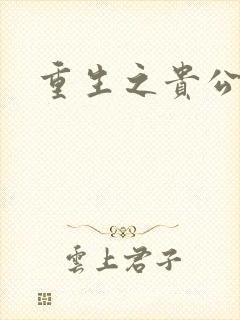 重生之貴公
雲上君子